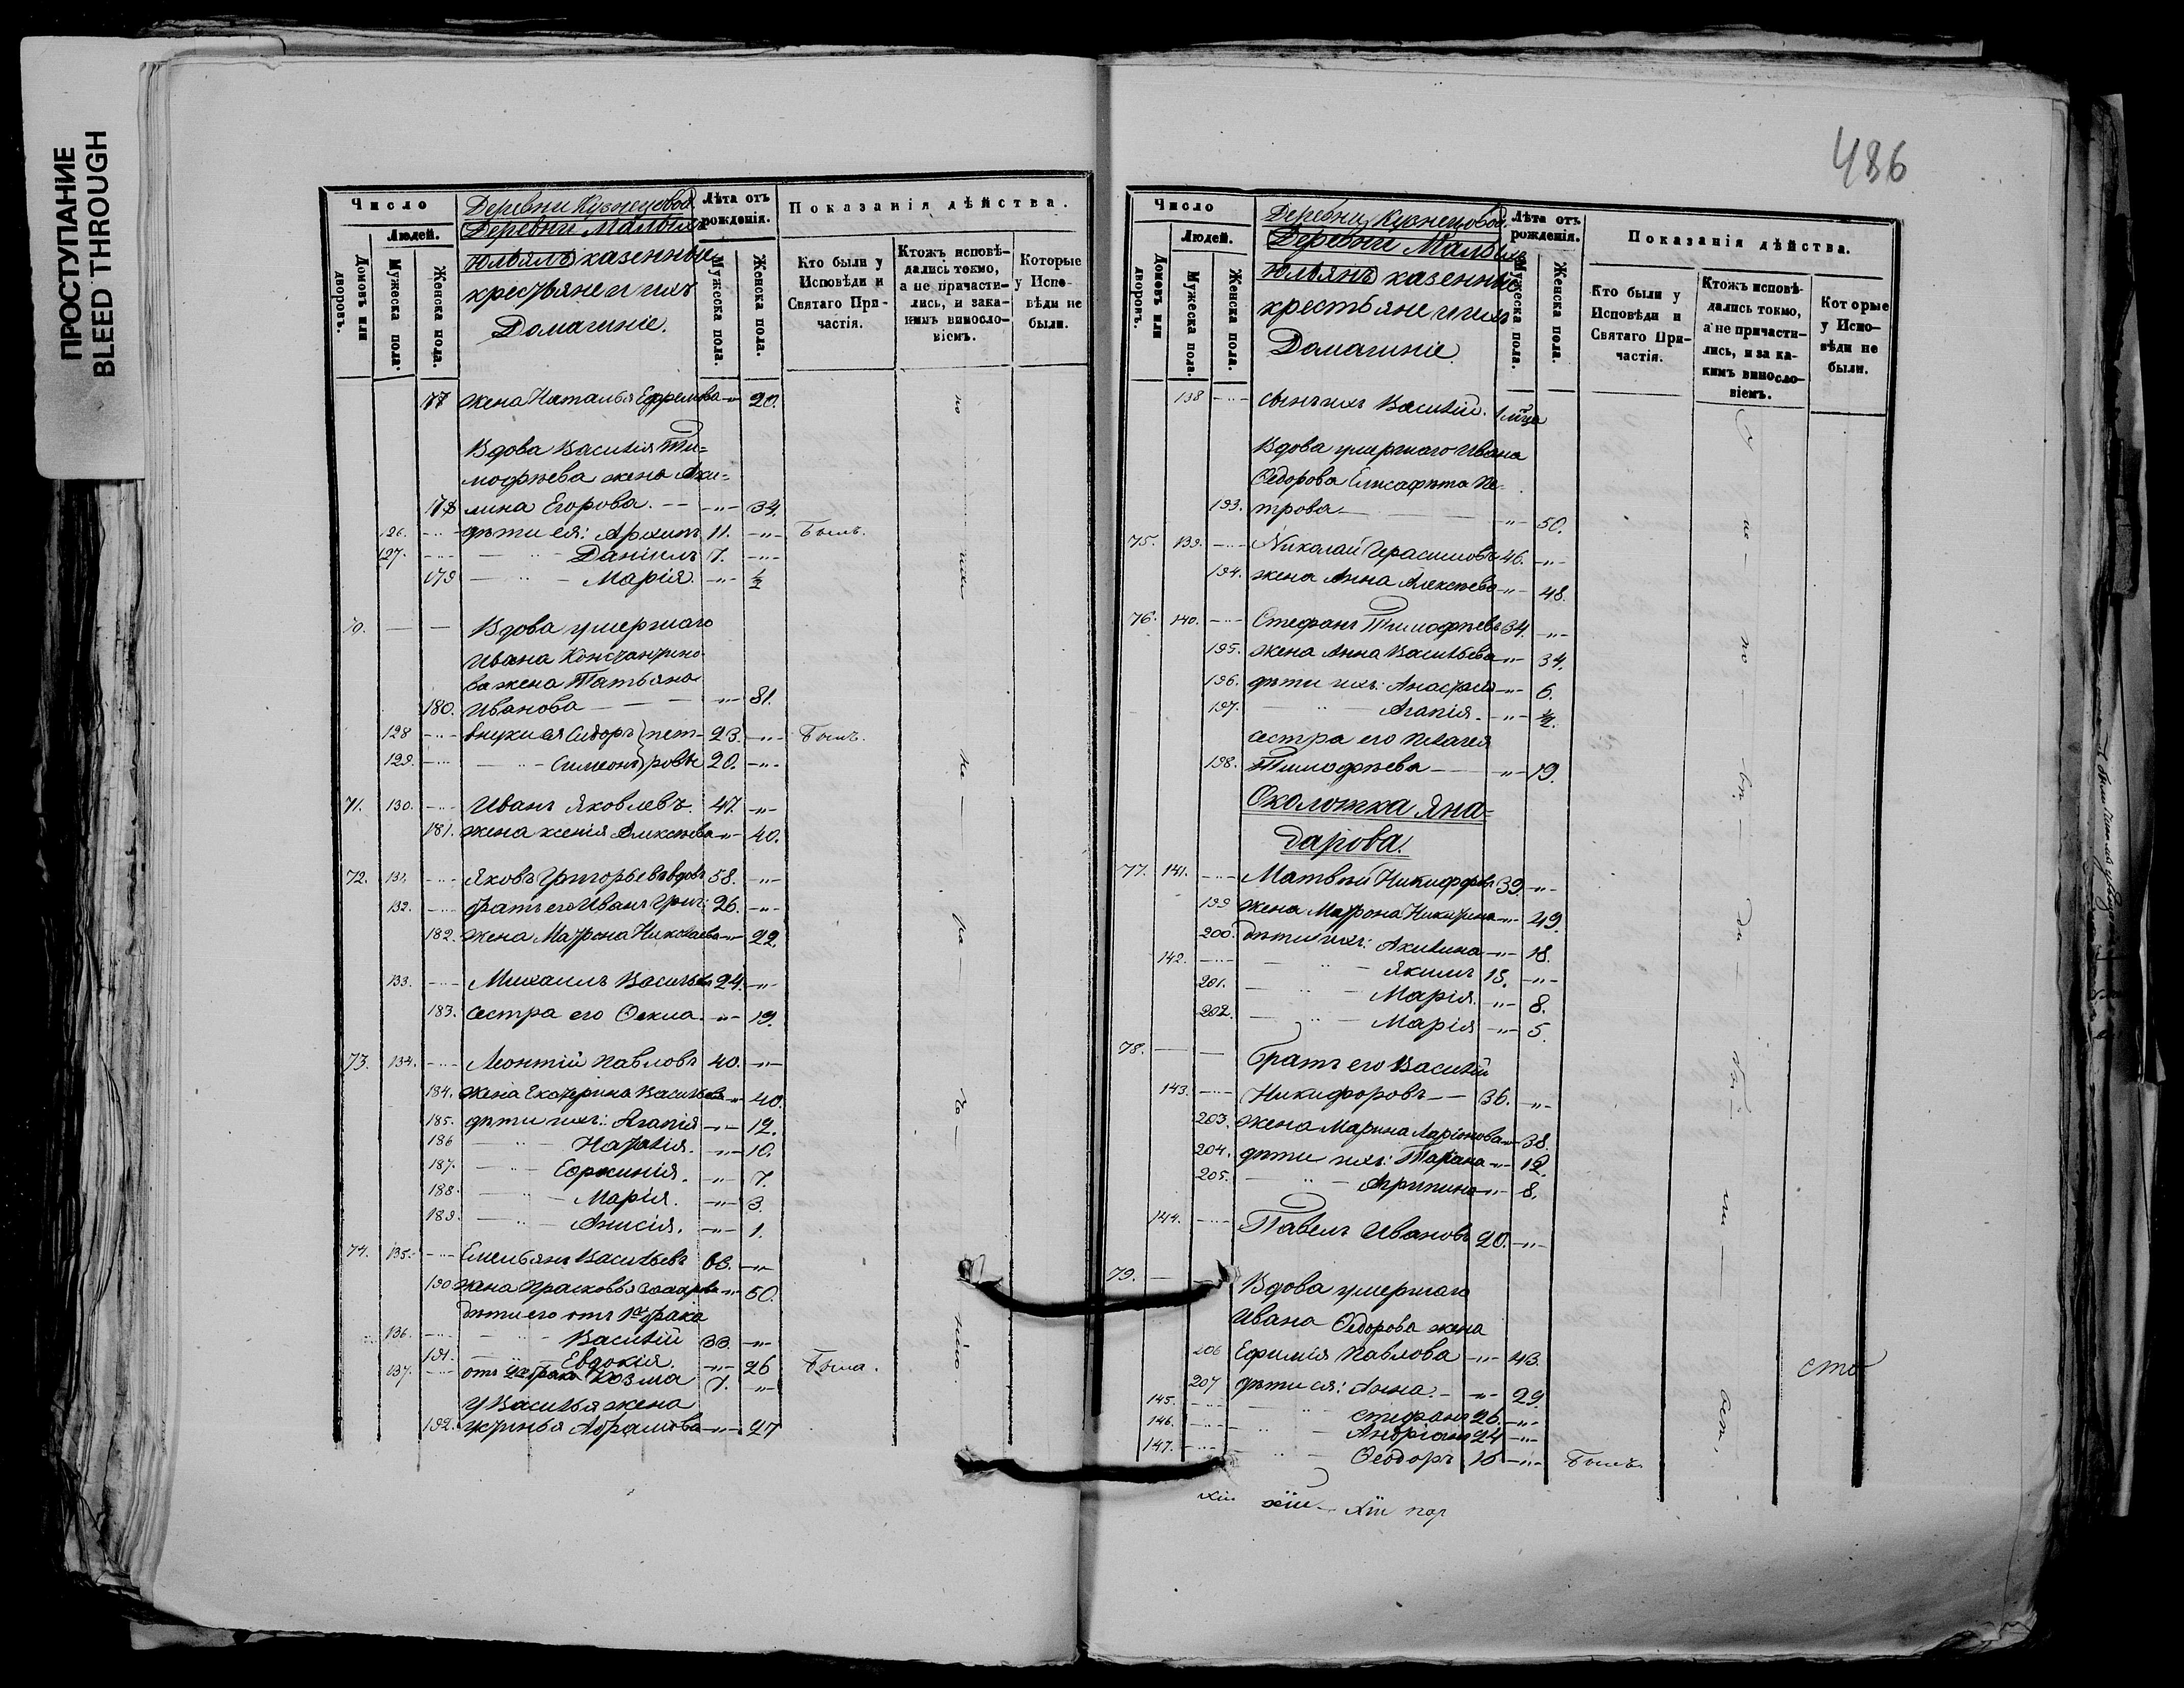 ПРОСТУПАНИЕ
BLEED THROUGH
Число
Людей.
Домовъ или дворовъ.
Мужеска пола.
Женска пола.
Деревни Кузнецовой.
Деревни Малыхъ
Юльялъ казенные
крестьяне и ихъ
Домашніе.
Лѣта отъ рожденія.
Мужеска пола.
Женска пола.
Показанія дѣйства.
Кто были у Исповѣди и Святаго Причастія.
Ктожъ исповѣдались токмо, а не причастились, и за какимъ винословіемъ.
Которые у Исповѣди не были.
177 жена Наталья Ефремова -"- 20.
Вдова Василія Ти=
мофѣева жена Аки=
178 лина Егорова. -- -"- 34.
126. дѣти ея: Архипъ 11. -"- Былъ.
127. Даніилъ 7. -"-
179 Марія. -"- ½
70. Вдова умершаго
Ивана Константино
ва жена Татьяна
180. Иванова -"- 81.
128 внуки ея Сидоръ } пет- 23. -"- Былъ.
129. Симеонъ } ровы 20. -"-
71. 130. Иванъ Яковлевъ. 47. -"-
181. жена Ксенія Алексѣева -"- 40.
72. 131. Яковъ Григорьевъ вдовъ 58. -"-
132. братъ его Иванъ Григ: 26. -"-
182. жена Матрона Николаева -"- 22.
133. Михаилъ Васильевъ 24. -"-
183. сестра его Ѳекла. -"- 19.
73. 134. Леонтій Павловъ 40. -"-
184. жена Екатерина Васильева -"- 40.
185. дѣти ихъ: Агапія -"- 12.
186 Наталія. -"- 10.
187. Ефросинія. -"- 7.
188. Марія. -"- 3.
189. Анисія. -"- 1.
74. 135. Емельянъ Васильевъ 63. -"-
190 жена Прасковья Захарова -"- 50.
дѣти его отъ 1го брака
136. Василій 33. -"-
191. Евдокія. -"- 26 Была.
137. отъ 2го брака Козма 7. -"-
У Василья жена
192. Устинья Абрамова -"- 27
486
Число
Людей.
Домовъ или дворовъ.
Мужеска пола.
Женска пола.
Деревни Кузнецовой.
Деревни Малыхъ
Юльянъ казенные
крестьяне и ихъ
Домашніе.
Лѣта отъ рожденія.
Мужеска пола.
Женска пола.
Показанія дѣйства.
Кто были у Исповѣди и Святаго Причастія.
Ктожъ исповѣдались токмо, а не причастились, и за какимъ винословіемъ.
Которые у Исповѣди не были.
138 сынъ ихъ Василій.
Вдова умершаго Ивана
Ѳедорова Елисафета Пе-
193. трова -"- 50.
75. 139. Николай Герасимовъ 46. -"-
194. жена Анна Алексѣева -"- 48.
76. 140. Стефанъ Тимофѣевъ 34. -"-
195. жена Анна Васильева -"- 34.
196. дѣти ихъ: Анастасія -"- 6.
197. Агапія. -"- ½.
сестра его Пелагея
198. Тимофѣева -"- 19.
Околотка Яна=
дарова.
77. 141. Матвѣй Никифоровъ 39. -"-
199 жена Матрона Никитина -"- 49.
200. дѣти ихъ: Акилина -"- 18.
142. Якимъ 15. -"-
201. Марія. -"- 8.
202. Марія -"- 5.
78. Братъ его Василій
143. Никифоровъ -- 36. -"-
203. жена Марина Ларіонова -"- 38.
204. дѣти ихъ: Татіана -"- 12.
205. Агрипина -"- 8.
144. Павелъ Ивановъ 20. -"-
79. Вдова умершаго
Ивана Ѳедорова жена
206 Ефимія Павлова -"- 43.
207 дѣти ея: Анна. -"- 29.
145. Стефанъ 26. -"-
146. Андріанъ 24 -"-
147. Ѳеодоръ 16 -"- Былъ.